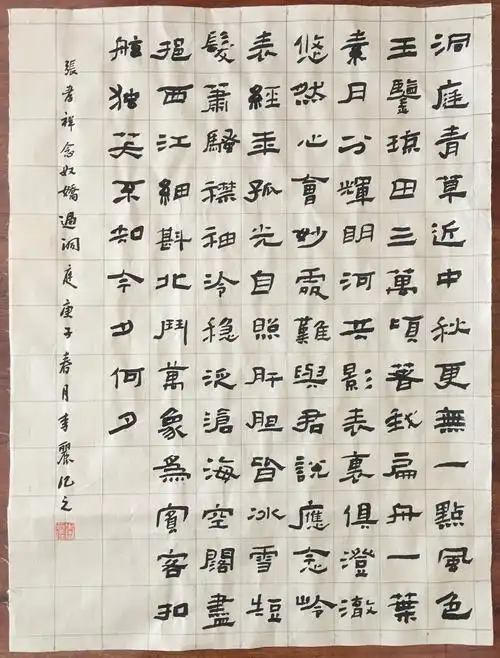 洞庭青草近中秋更無一點風色
玉鑒琼田三萬頃著我扁舟一葉
素月分輝明河共影表裏俱澄澈
悠然心會妙處難與君說應念岭
表經年孤光自照肝胆皆冰雪短
髮蕭騷襟袖冷稳泛滄海空闊盡
挹西江細斟北鬥萬象為賓客扣
舷独笑不知今夕何夕
張孝祥念奴嬌過洞庭庚子春月李麗记之